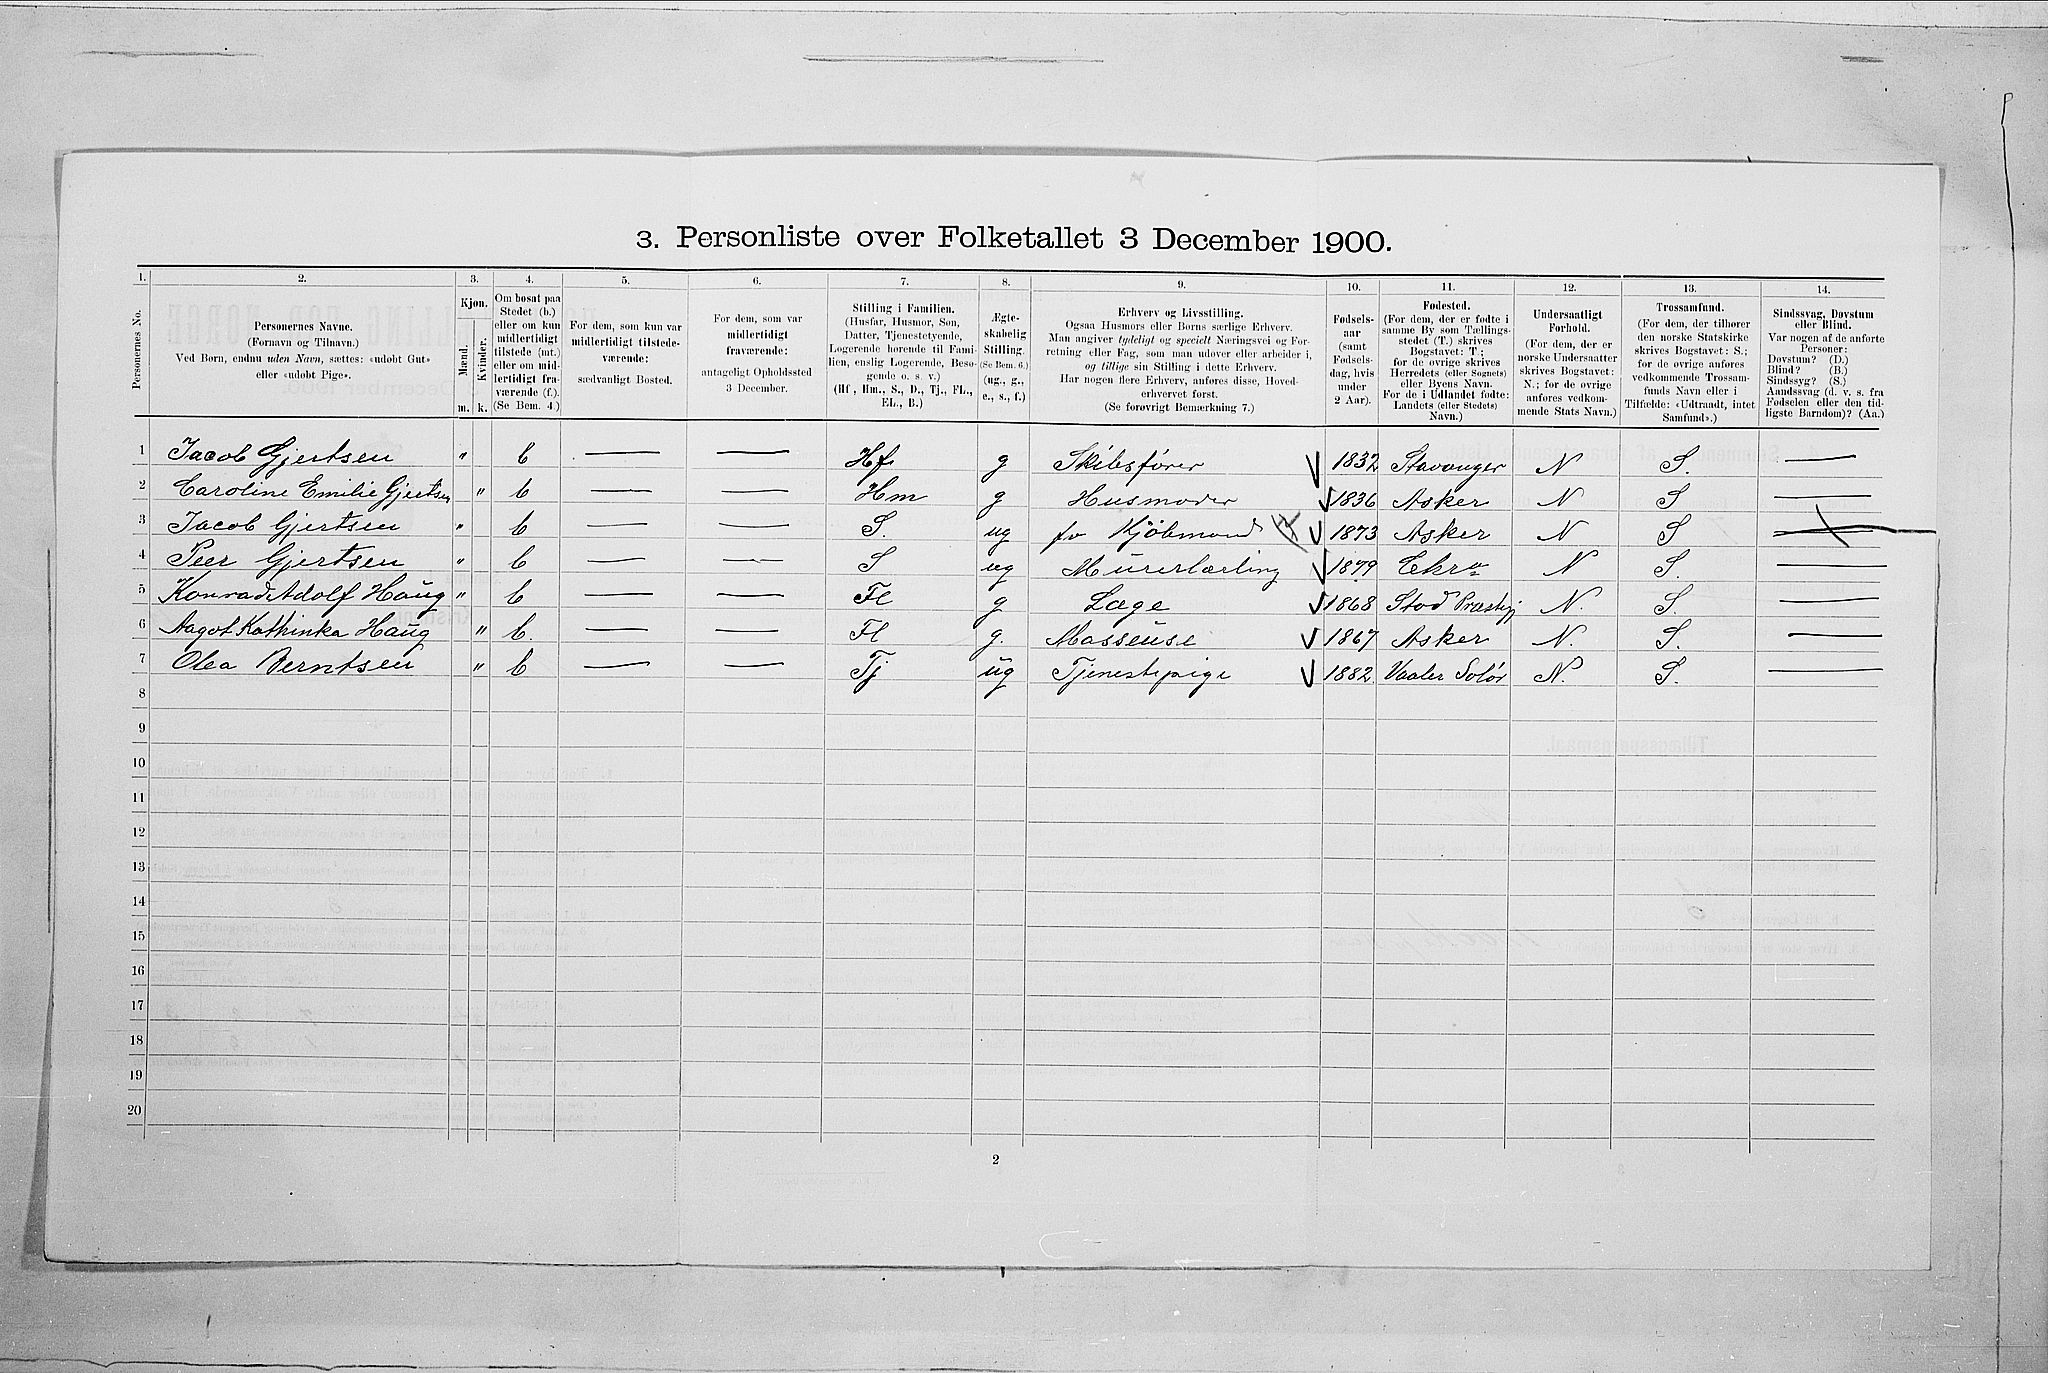 3. Personliste over Folketallet 3 December 1900.
1. 2. 3. 4. 5. 6. 7. 8. 9. 10. 11. 12. 13. 14.
Personernes No.
Personernes Navne.
(Fornavn og Tilnavn.)
Ved Børn, endnu uden Navn, sættes: «udøbt Gut»
eller «udøbt Pige».
Kjøn.
Mænd.
Kvinder.
m. k.
Om bosat paa
Stedet (b.)
eller om kun
midlertidigt
tilstede (mt.)
eller om mid-
lertidigt fra-
værende (f.).
(Se Bem. 4.)
For dem, som kun var
midlertidigt tilstede-
værende:
sædvanligt Bosted.
For dem, som var
midlertidigt
fraværende:
antageligt Opholdssted
3 December.
Stilling i Familien.
(Husfar, Husmor, Søn,
Datter, Tjenestetyende,
Logerende hørende til Fami-
lien, enslig Logerende, Besø-
gende o. s. v.)
(Hf., Hm., S., D., Tj., FL.,
EL., B.)
Ægte-
skabelig
Stilling.
(Se Bem. 6.)
(ug., g.,
e., s., f.)
Erhverv og Livsstilling.
Ogsaa Husmors eller Børns særlige Erhverv.
Man angiver tydeligt og specielt Næringsvei og For-
retning eller Fag, som man udøver eller arbeider i,
og tillige sin Stilling i dette Erhverv.
Har nogen flere Erhverv, anføres disse, Hoved-
erhvervet først.
(Se forøvrigt Bemærkning 7.)
Fødsels-
aar
(samt
Fødsels-
dag, hvis
under
2 Aar).
Fødested.
(For dem, der er fødte i
samme By som Tællings-
stedet (T.) skrives
Bogstavet: T.;
for de øvrige skrives
Herredets (eller Sognets)
eller Byens Navn.
For de i Udlandet fødte:
Landets (eller Stedets)
Navn.)
Undersaatligt
Forhold.
(For dem, der er
norske Undersaatter
skrives Bogstavet:
N.; for de øvrige
anføres vedkom-
mende Stats Navn.)
Trossamfund.
(For dem, der tilhører
den norske Statskirke
skrives Bogstavet: S.;
for de øvrige anføres
vedkommende Trossam-
funds Navn eller i
Tilfælde: «Udtraadt, intet
Samfund».)
Sindssvag, Døvstum
eller Blind.
Var nogen af de anførte
Personer:
Døvstum? (D.)
Blind? (B.)
Sindssyg? (S.)
Aandssvag (d. v. s. fra
Fødselen eller den tid-
ligste Barndom)? (Aa.)
1 Jacob Gjertsen " b — — Hf. g Skibsfører 1832 Stavanger N S. —
2 Caroline Emilie Gjertsen " b — — Hm g Husmoder 1836 Asker N S —
3 Jacob Gjertsen " b — — S. ug fv Kjøbmand 1873 Asker N S —
4 Peer Gjertsen " b — — S ug Murerlærling 1879 N S. —
5 Konrad Adolf Haug " b — — Fl g Læge 1868 Stod Præstegj N. S. —
6 Aagot Kathinka Haug " b. — — Fl g. Masseuse 1867 Asker N. S. —
7 Olea Berntsen " b — — Tj ug Tjenestepige 1882 Vaaler Solør N. S. —
8
9
10
11
12
13
14
15
16
17
18
19
20
2